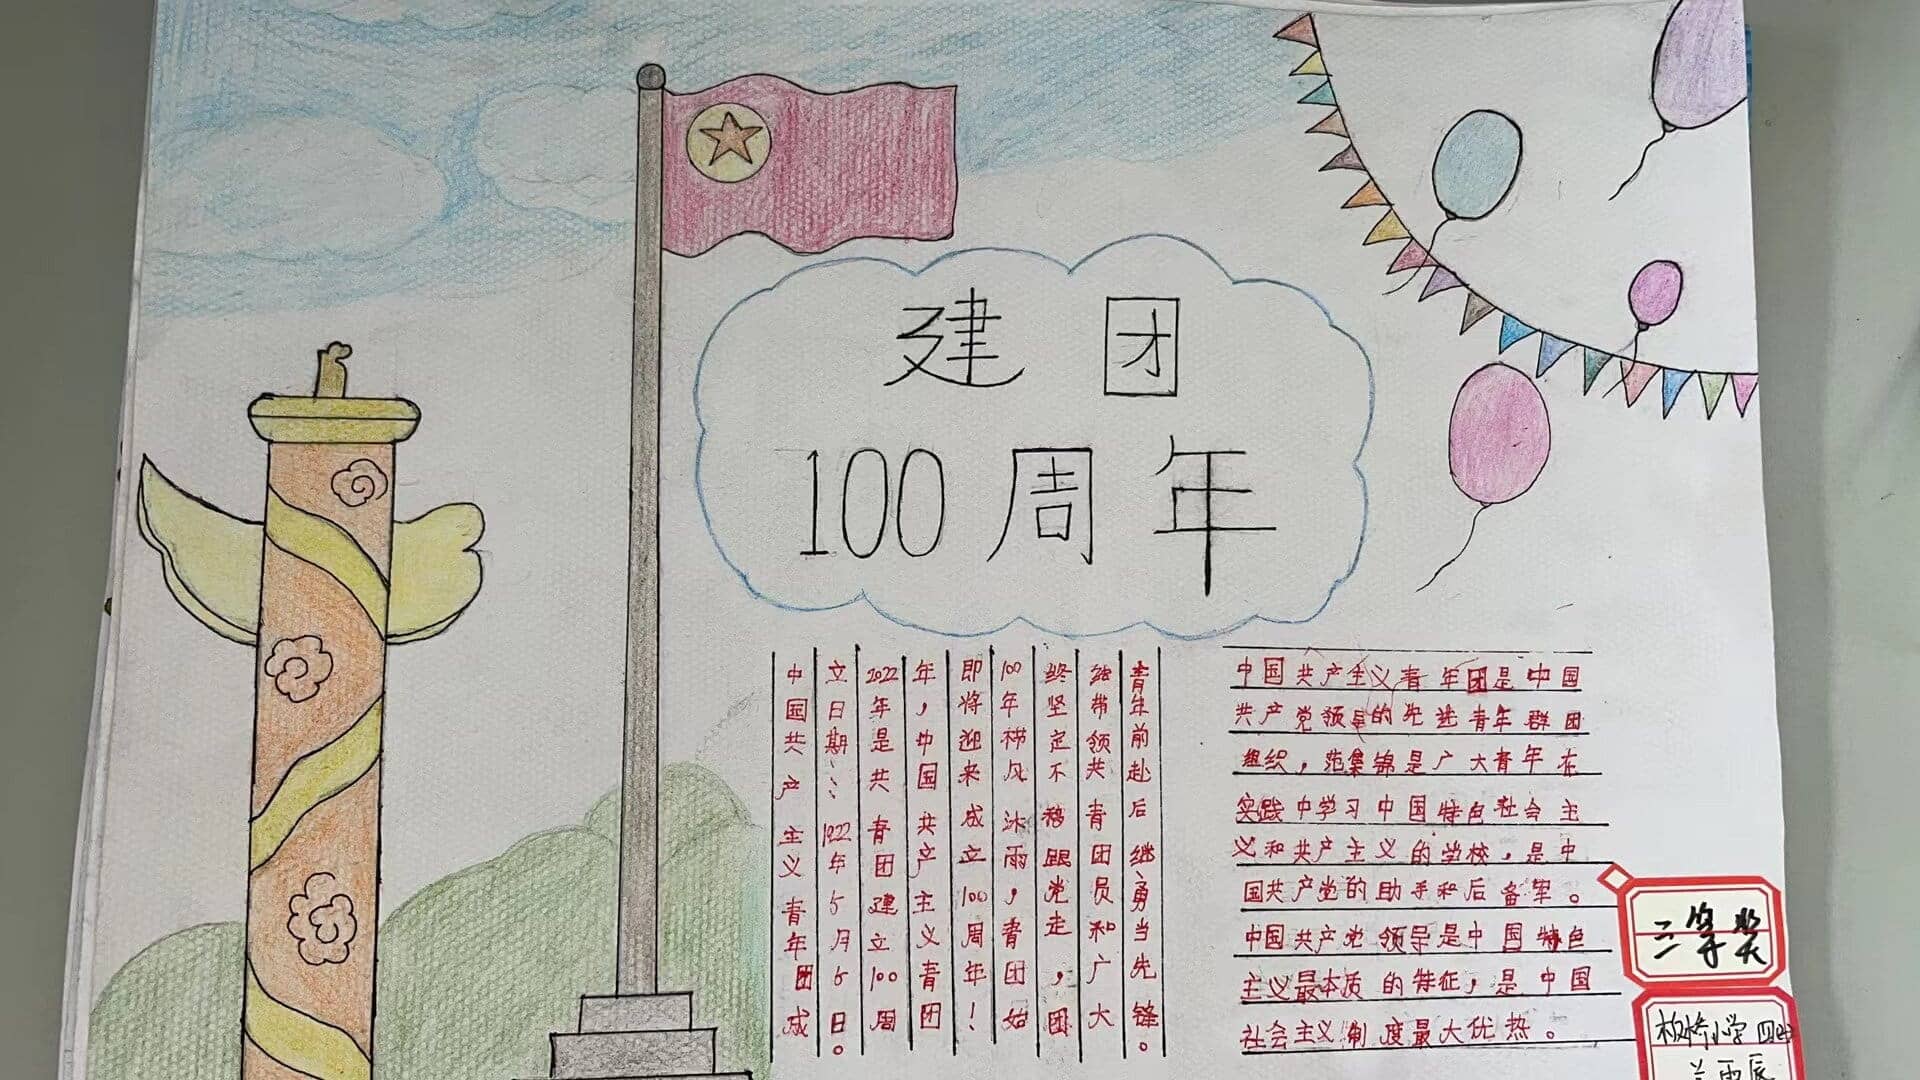 建团
100周年
中国共产主义青年团成
立日期:1922年5月5日。
2022年是共青团建立100周
年，中国共产主义青团
即将迎来成立100周年！
100年栉风沐雨，青团始
终坚定不移跟党走，团
结带领共青团员和广大
青年前赴后继、勇当先锋。
中国共产主义青年团是中国
共产党领导的先进青年群团
组织，范集锦是广大青年在
实践中学习中国特色社会主
义和共产主义的学校，是中
国共产党的助手和后备军。
中国共产党领导是中国特色
主义最本质的特征，是中国
社会主义制度最大优热。
三等奖
小学